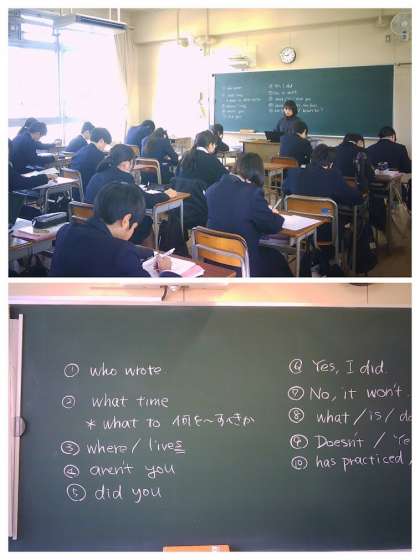 ① who wrote
② what time
* what to 何を~すべきか
③ where / lives
④ aren't you
⑤ did you
⑥ Yes, I did.
⑦ No, it won't.
⑧ what / is /
⑨ Doesn't /
⑩ has practiced